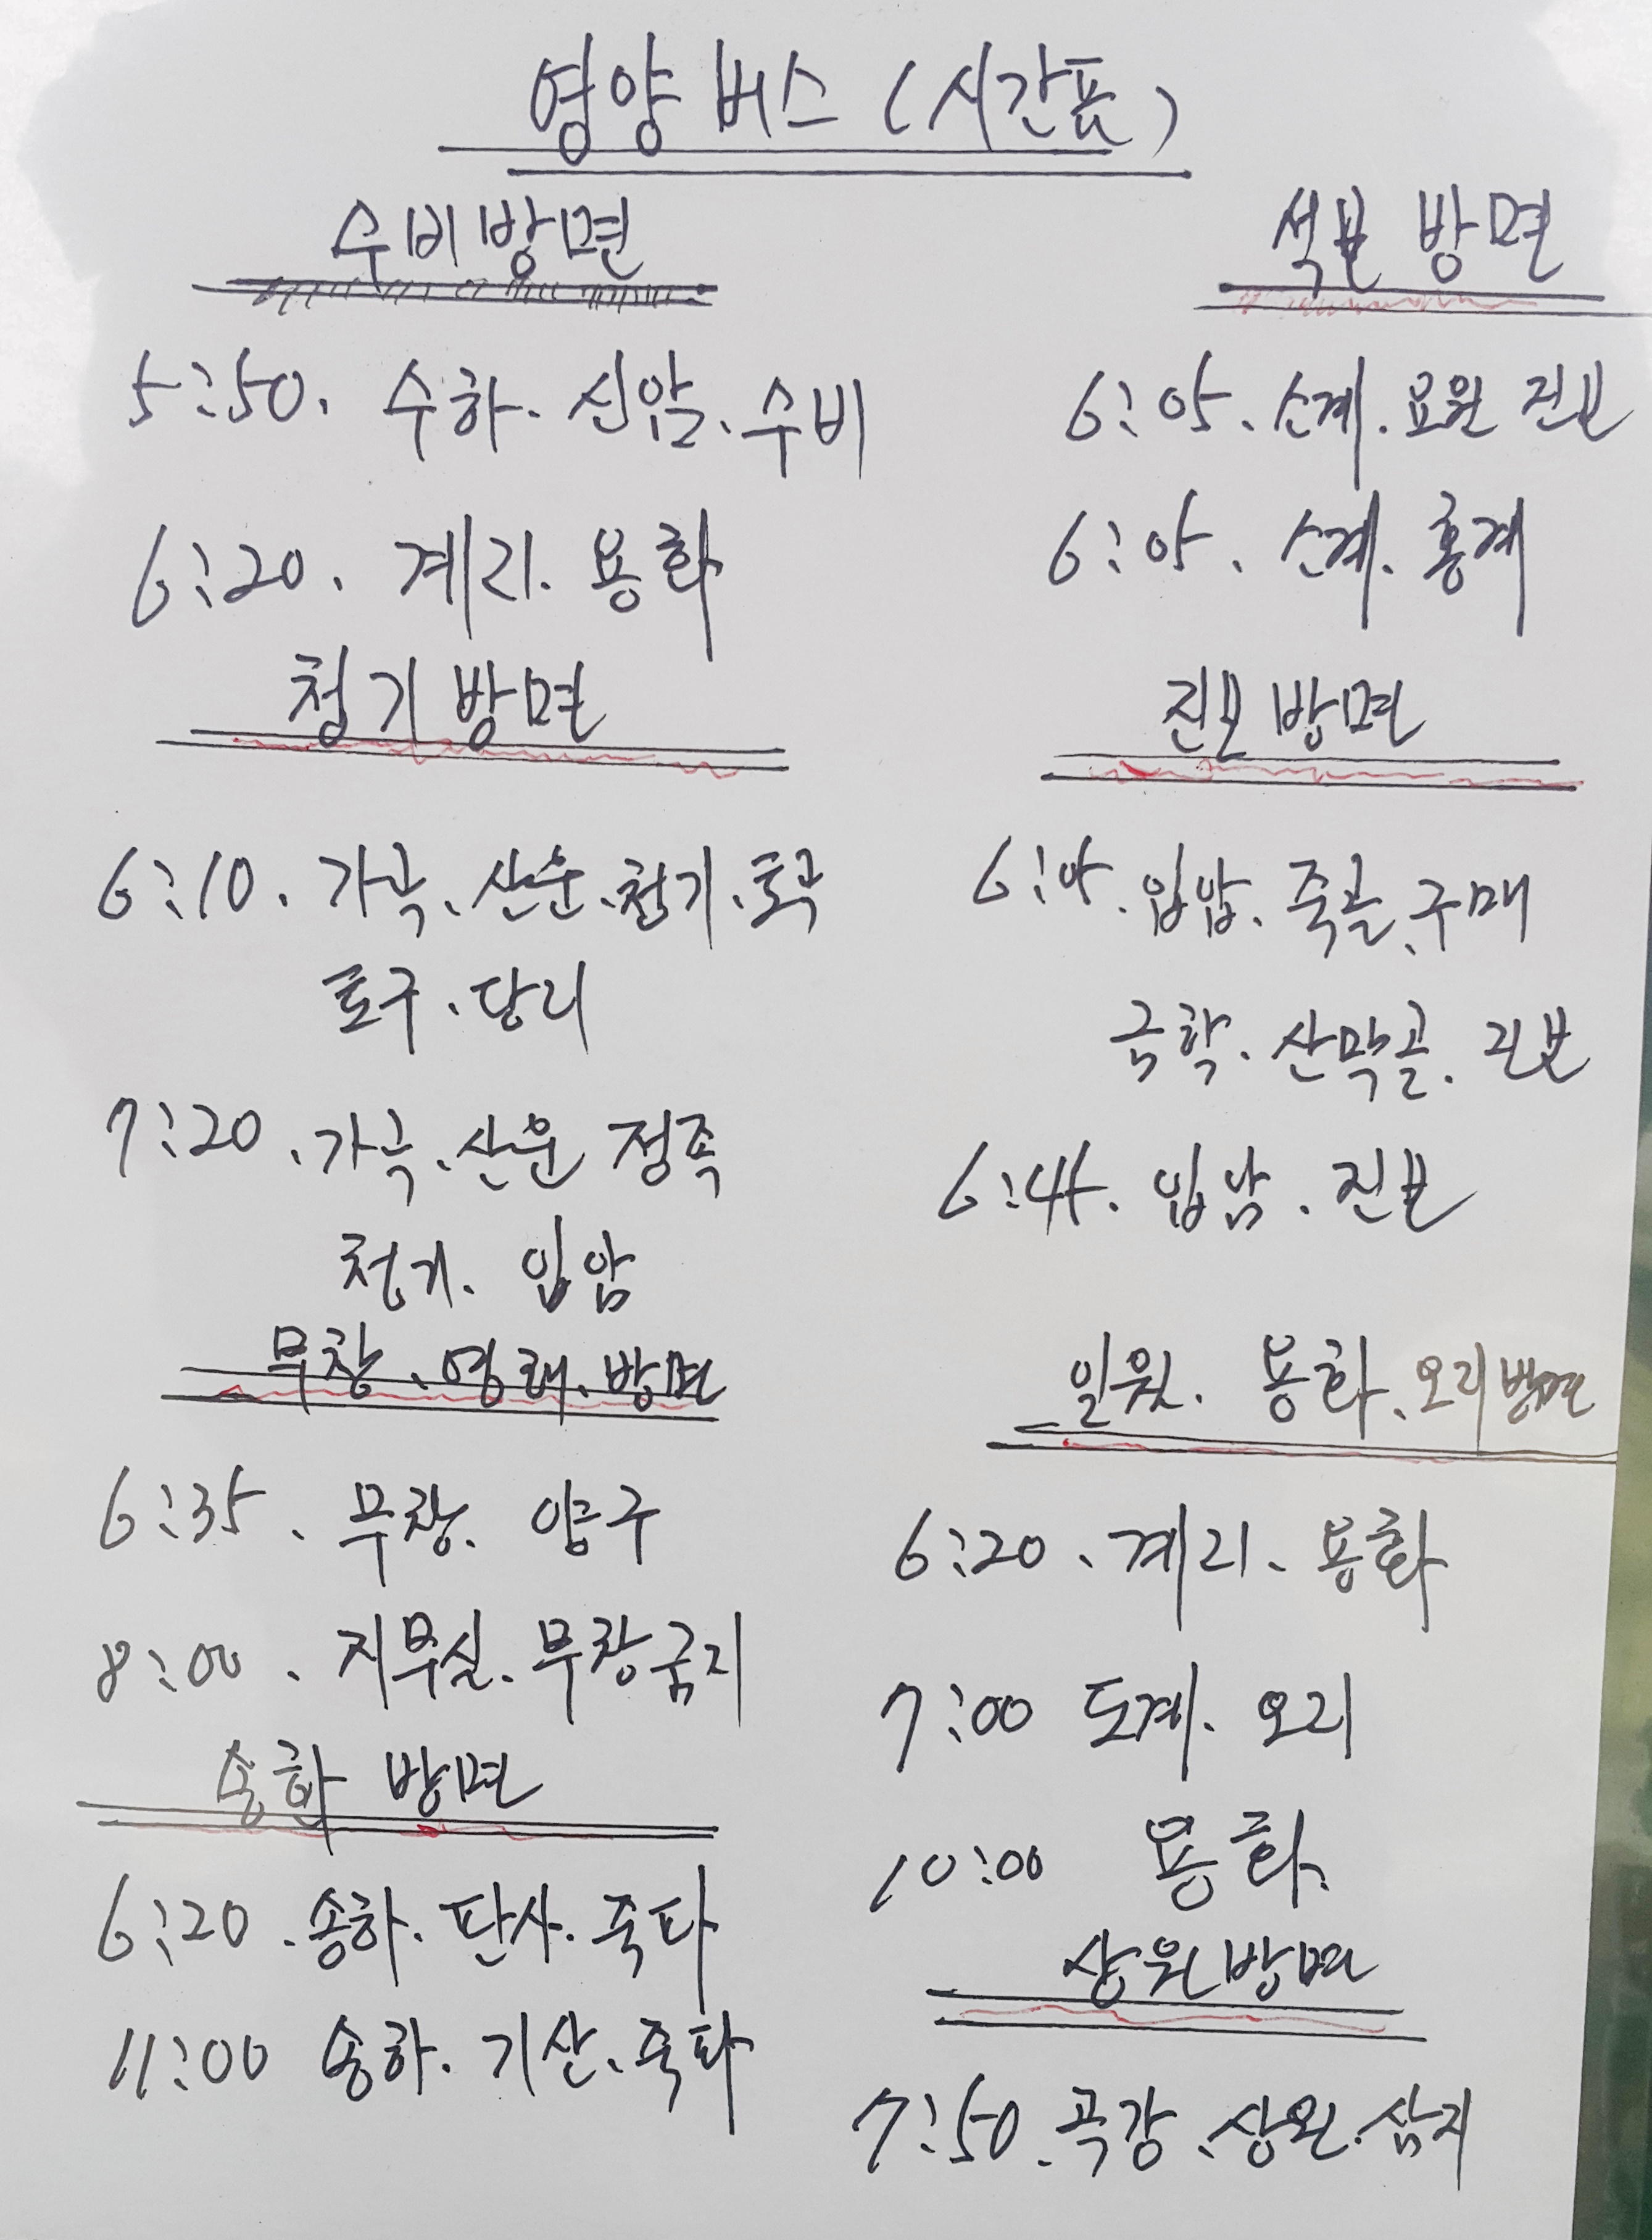 영양 버스 (시간표)
수비방면
5:50. 수하. 신암. 수비
6:20. 계리. 용화
청기 방면
6:10. 가곡. 산운. 청기. 토곡
토구. 당리
7:20. 가곡. 산운 정족
청기. 입암
무창. 영해. 방면
6:35. 무창. 양구
8:00. 지무실. 무창굼지
송하 방면
6:20. 송하. 판사. 죽파
11:00 송하. 기산. 죽파
석보 방면
6:05. 소계. 요원 진보
6:05. 소계. 홍계
진보 방면
입암. 죽골. 구매
금학. 산막골. 진보
6:45. 입암. 진보
일월. 용화. 오리방면
6:20. 계리. 용화
7:00 도계. 오리
10:00 용화.
상원방면
7:50. 곡강. 상원. 삼지